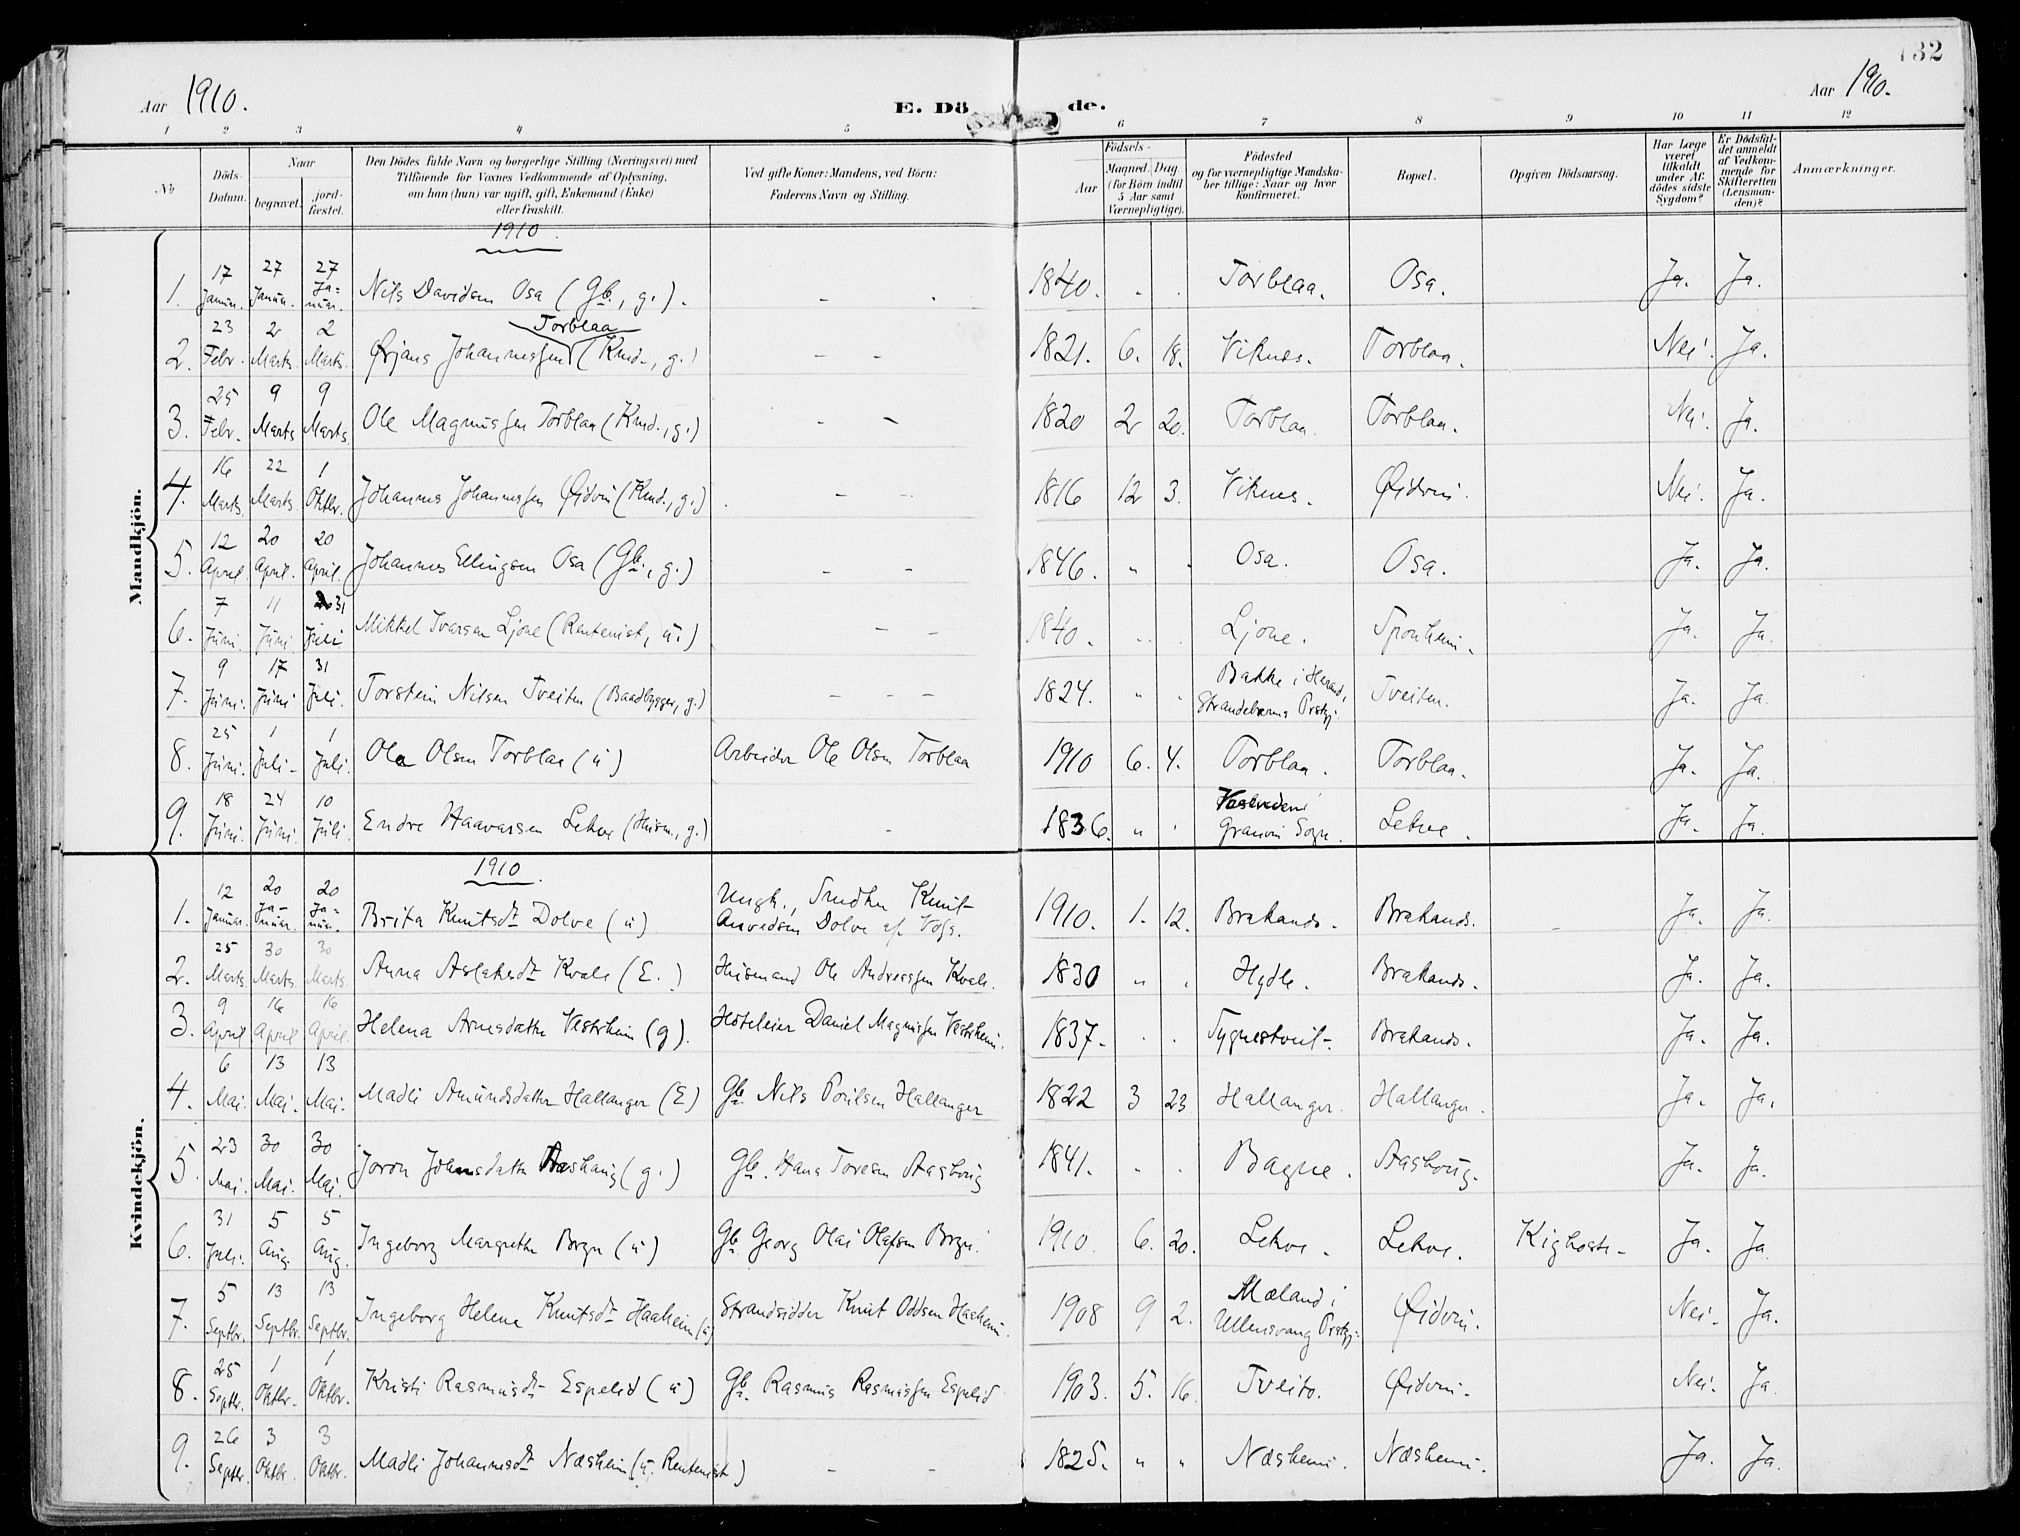 132
Aar 1910.
E. Döde.
Aar 1910.
1 2 3 4 5 6 7 8 9 10 11 12
No
Döds-Datum.
Naar
begravet.
jordfæstet.
Den Dödes fulde Navn og borgerlige Stilling (Næringsvei) med
Tilföiende for Voxnes Vedkommende af Oplysning,
om han (hun) var ugift, gift, Enkemand (Enke)
eller fraskilt.
Ved gifte Koner: Mandens, ved Börn:
Faderens Navn og Stilling.
Födsels-
Aar
Maaned. Dag
(for Börn indtil
5 Aar samt
Værnepligtige).
Födested
og for værnepligtige Mandskaber tillige: Naar og hvor
konfirmeret.
Bopæl.
Opgiven Dödsaarsag.
Har Læge
været
tilkaldt
under Afdödes sidste
Sygdom?
Er Dödsfaldet anmeldt
af Vedkommende for
Skifteretten
(Lensmanden)?
Anmærkninger.
Mandkjön.
1910
1. 17 Januar. 27 Januar. 27 Januar. Nils Davidsen Osa (Gb., g.). - - 1840. Torblaa. Osa. Ja. Ja.
2. 23 Febr. 2 Marts. 2 Marts. Ørjans Johannessen Torblaa (Kmd., g.) - - 1821. 6. 18. Viknes. Torblaa. Nei. Ja.
3. 25 Febr. 9 Marts 9 Marts Ole Magnussen Torblaa (Kmd., g.) - - 1820 2 20. Torblaa. Torblaa. Nei. Ja.
4. 16 Marts. 22 Marts. 1 Oktbr. Johannes Johannessen Øidvin (Kmd., g.) - 1816 12 3. Viknes. Øidvin. Nei. Ja.
5. 12 April 20 April. 20 April. Johannes Ellingsen Osa (Gb., g.) - - 1846. " " Osa. Osa. Ja. Ja.
6. 7 Juni. 11 Juni 31 Juli Mikkel Ivarsen Ljone (Rentenist, u.) - - 1840. Ljone. Sponheim. Ja. Ja.
7. 9 Juni. 17 Juni 31 Juli. Torstein Nilsen Tveiten (Baadbygger, g.) - - - 1824. " " Bakke i Herand, Strandebarms Prstgj. Tveiten. Ja. Ja
8. 25 Juni. 1 Juli. 1 Juli. Ola Olsen Torblaa (u) Arbeider Ole Olsen Torblaa 1910 6. 4. Torblaa. Torblaa. Ja. Ja.
9. 18 Juni. 24 Juni. 10 Juli. Endre Haavarsen Lekve (Husm., g.) - 1836. " " Granvin Sogn. Lekve. Ja. Ja.
Kvindekjön.
1910.
1. 12 Januar. 20 Januar. 20 Januar. Brita Knutsdt Dolve (u) Ungk., Smeden Knut Anvedsen Dolve af Voss. 1910. 1. 12. Brakanes. Brakanes. Ja. Ja.
2. 25 Marts. 30 Marts. 30 Marts. Anna Aslaksdt Kvale (E.) Husmand Ole Andreassen Kvale. 1830 " " Hylle. Brakanes. Ja. Ja.
3. 9 April 16 April 16 April. Helena Arnesdatter Vestrheim (g). Hoteleier Daniel Magnussen Vestrheim. 1837. Brakanes. Ja. Ja.
4. 6 Mai. 13 Mai. 13 Mai. Madli Amundsdatter Hallanger (E) Gb. Nils Poulsen Hallanger 1822 3 23 Hallanger. Hallanger. Ja. Ja.
5. 23 Mai. 30 Mai. 30 Mai. Joron Johnsdatter Aashaug (g.) Gb. Hans Toresen Aashaug 1841. Bagne. Aashaug. Ja. Ja.
6. 31 Juli. 5 Aug. 5 Aug. Ingeborg Margrethe Borge (u) Gb Georg Olai Olafsen Borge. 1910. 6. 20. Lekve. Lekve. Kighoste. Ja. Ja
7. 5 Septbr. 13 Septbr. 13 Septbr. Ingeborg Helena Knutsdt Haaheim (u) Strandsidder Knut Oddsen Haaheim. 1908 9 2. Mæland i Ullensvang Prstgj. Øidvin. Nei. Ja.
8. 25 Septbr. 1 Oktbr. 1 Oktbr. Kristi Rasmusdt Espelid (u) Gb. Rasmus Rasmussen Espelid 1903. 5. 16. Tveito. Øidvin. Nei. Ja.
9. 26 Septbr. 3 Oktbr. 3 Oktbr. Madli Johannesdt Næsheim (u. Rentenist) - - 1825. " " Næsheim. Næsheim. Ja. Ja.